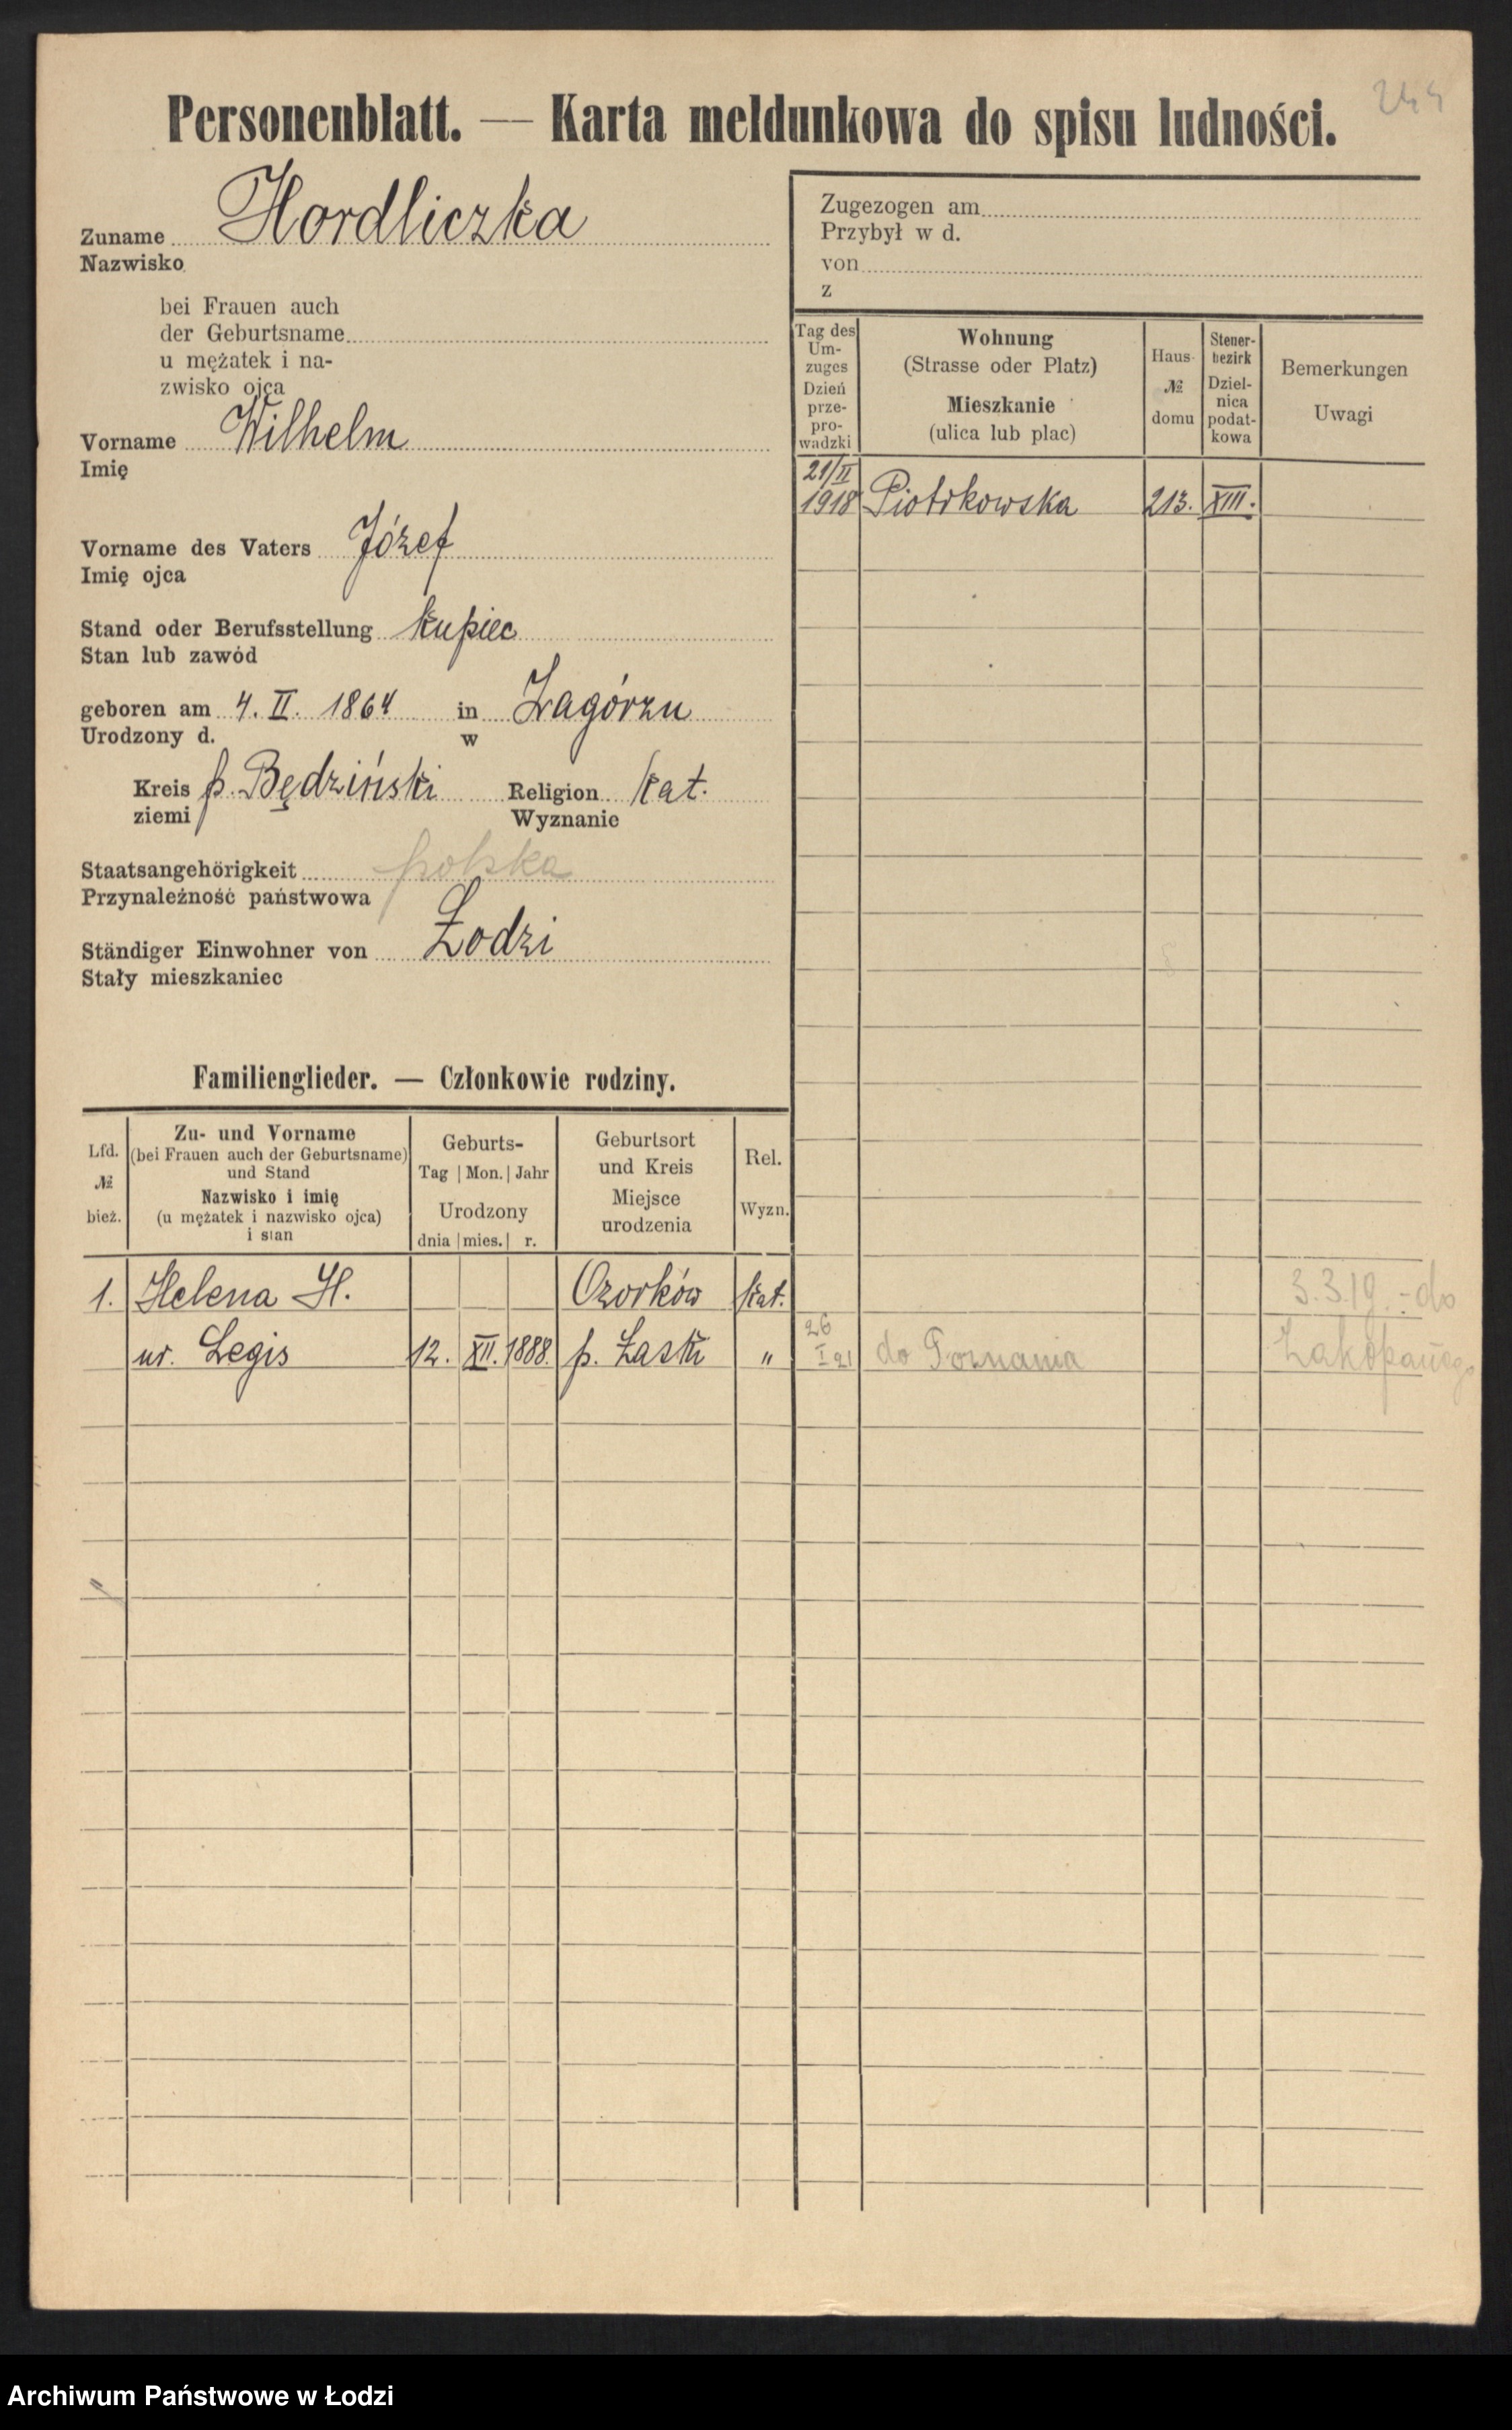 244
Personenblatt. — Karta meldunkowa do spisu ludności.
Zuname Hordliczka
Nazwisko
bei Frauen auch
der Geburtsname
u mężatek i na-
zwisko ojca
Vorname Wilhelm
Imię
Vorname des Vaters Józef
Imię ojca
Stand oder Berufsstellung kupiec
Stan lub zawód
geboren am 4. II. 1864 in Zagórzu
Urodzony d. w
Kreis p. Będziński Religion kat.
ziemi Wyznanie
Staatsangehörigkeit polska
Przynależność państwowa
Ständiger Einwohner von Łodzi
Stały mieszkaniec
Zugezogen am
Przybył w d.
von
z
Tag des
Um-
zuges
Dzień
prze-
pro-
wadzki
Wohnung
(Strasse oder Platz)
Mieszkanie
(ulica lub plac)
Haus-
№
domu
Steuer-
bezirk
Dziel-
nica
podat-
kowa
Bemerkungen
Uwagi
21/II
1918 Piotrkowska 213. XIII.
Familienglieder. — Członkowie rodziny.
Lfd.
№
bież.
Zu- und Vorname
(bei Frauen auch der Geburtsname)
und Stand
Nazwisko i imię
(u mężatek i nazwisko ojca)
i stan
Geburts-
Tag | Mon. | Jahr
Urodzony
dnia | mies. | r.
Geburtsort
und Kreis
Miejsce
urodzenia
Rel.
Wyzn.
1. Helena H. Ozorków kat.
ur. Legis 12. XII. 1888. p. Łaski "
3.3.19. - do
Zakopanego
26
I 21 do Poznania
Archiwum Państwowe w Łodzi